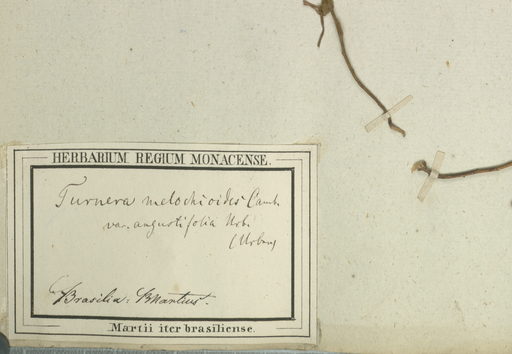 HERBARIUM REGIUM MONACENSE.
Turnera melochioides Camb.
var. angustifolia Urb.
(Urban)
Brasilia: Martius.
Martii iter brasiliense.